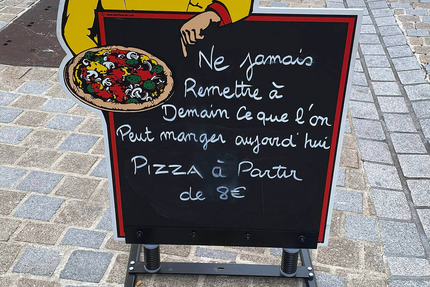 Ne jamais
Remettre à
Demain Ce que l'on
Peut manger aujord'hui
PIZZA à Partir
de 8€